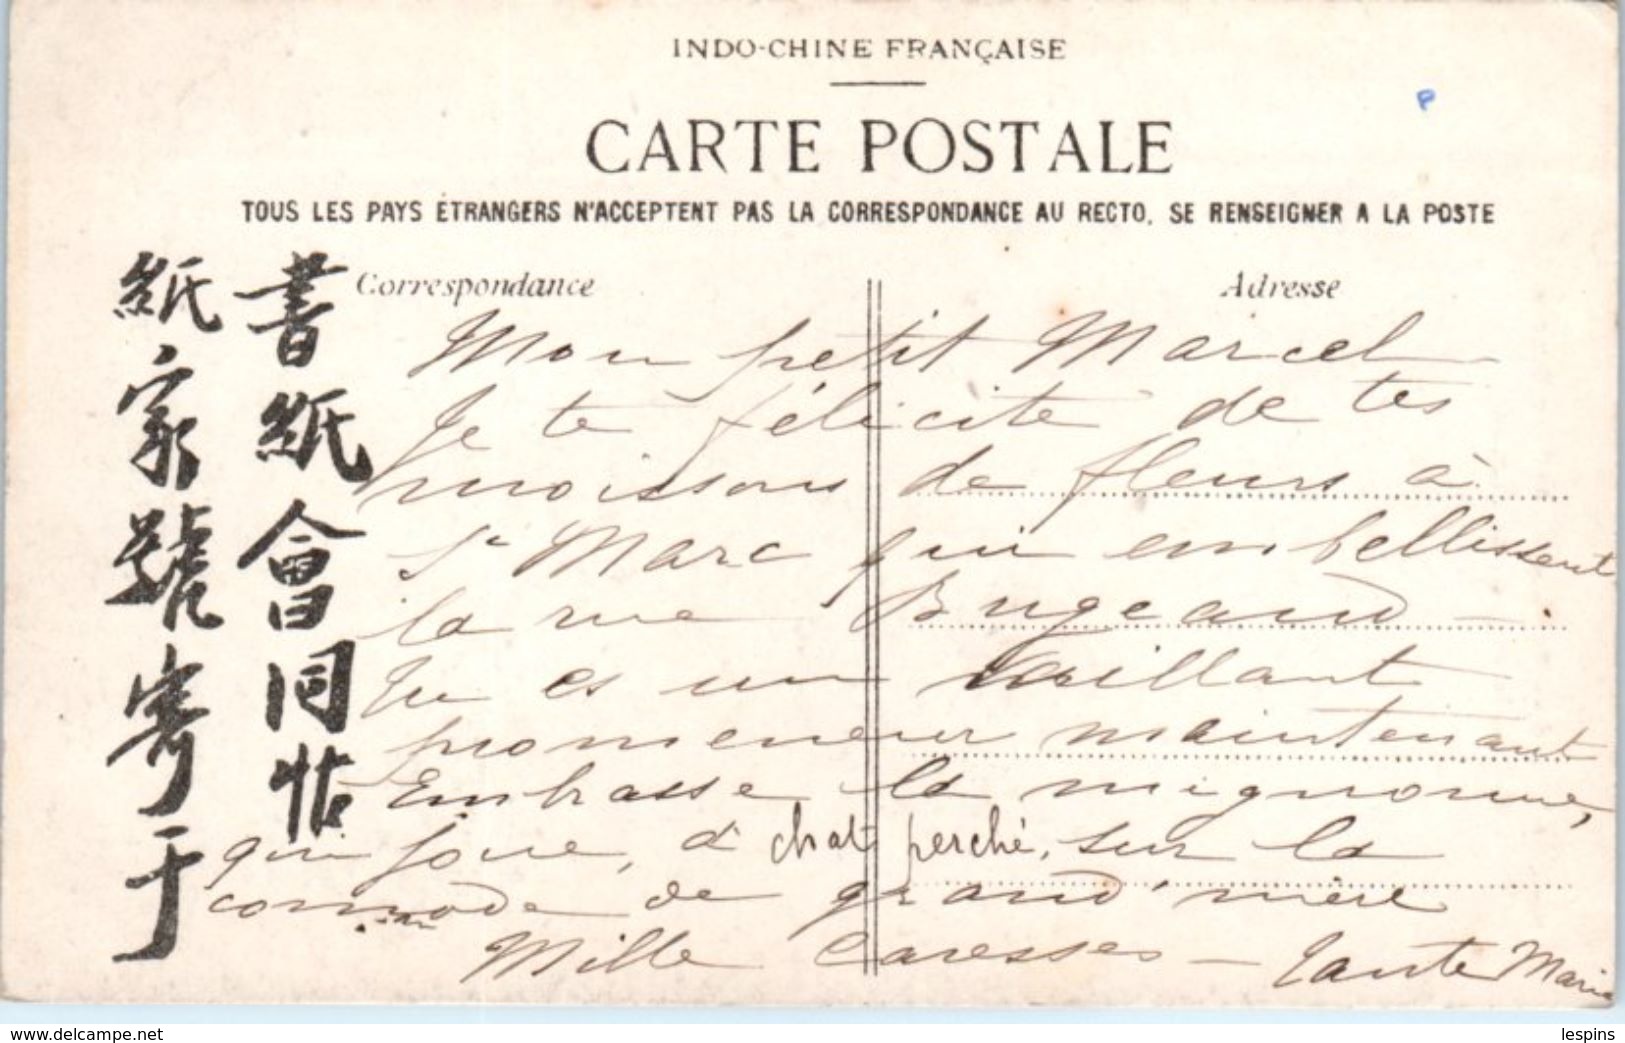 INDO-CHINE FRANÇAISE
CARTE POSTALE
TOUS LES PAYS ÉTRANGERS N'ACCEPTENT PAS LA CORRESPONDANCE AU RECTO. SE RENSEIGNER A LA POSTE
P
書紙會同帖
紙家號寄于
Correspondance
Adresse
Mon petit Marcel
Je te félicite de tes
moissons de fleurs à
St Marc qui embellissent
la rue Bugeaud —
Tu es un vaillant
promeneur maintenant
Embrasse la mignonne,
qui joue, à chat perché, sur la
comode de grand'mère
Mille caresses — Tante Marie
www.delcampe.net
lespins